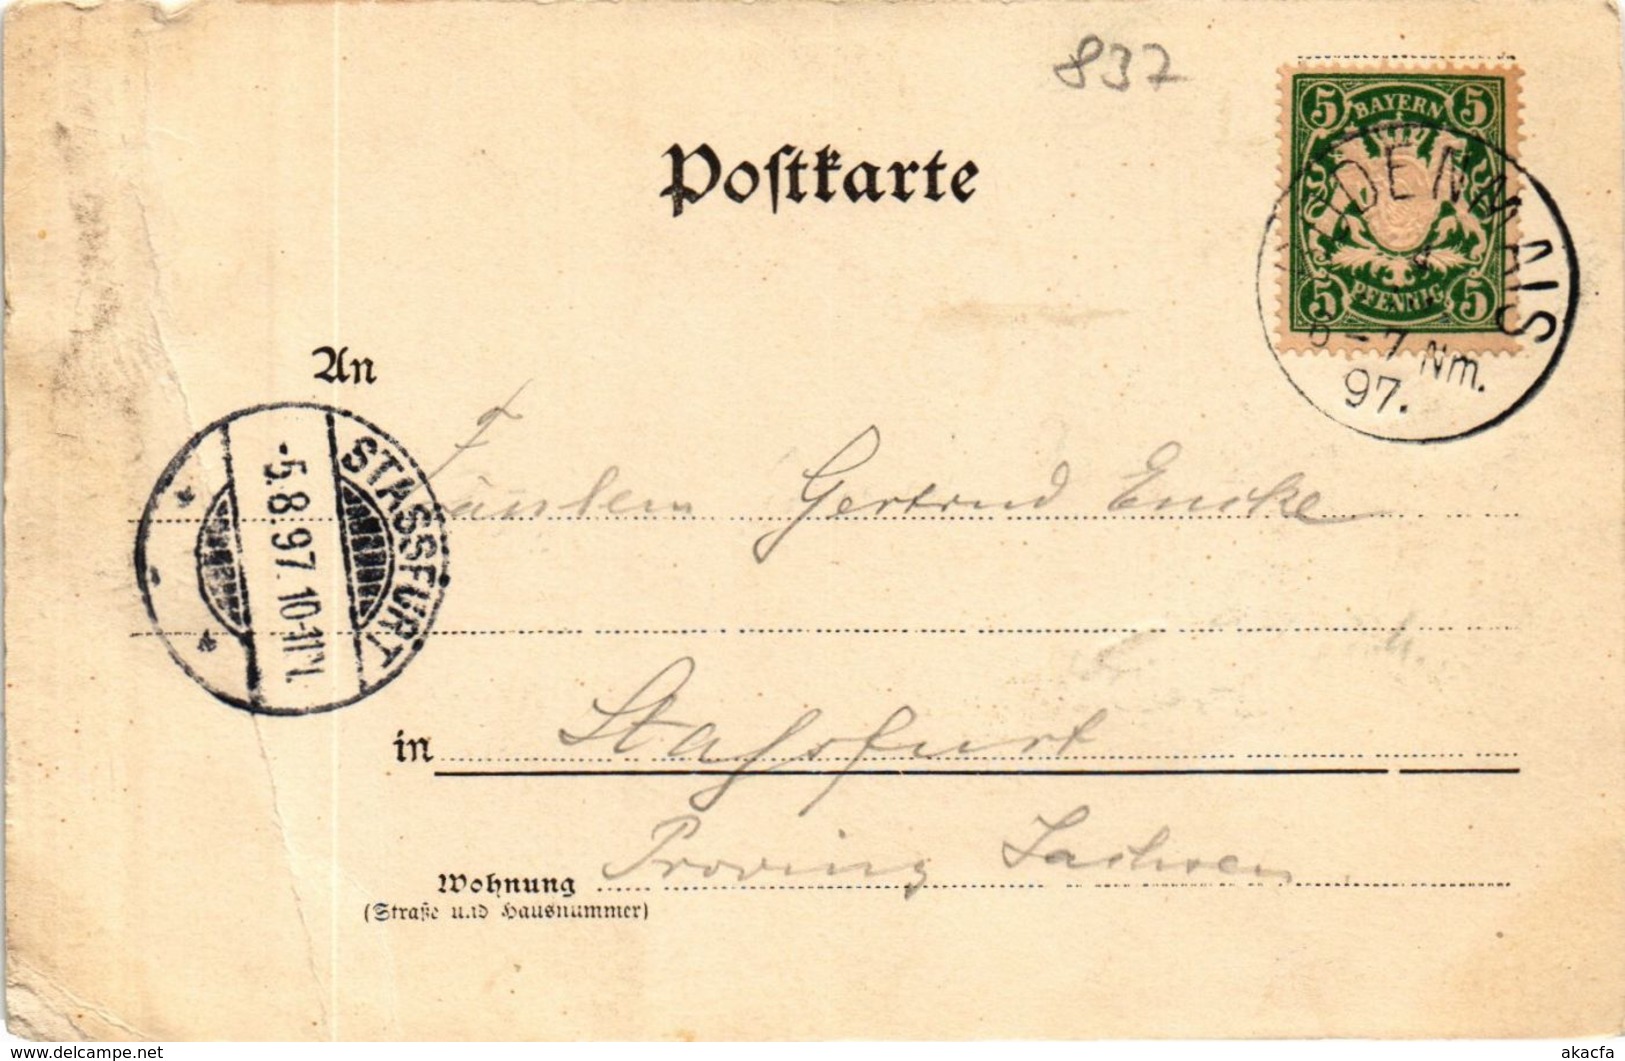 837
Postkarte
5 BAYERN 5
5 PFENNIG 5
6-7 Nm.
97.
An
STASSFURT
-5.8.97. 10-11
Fräulein Gertrud Encke
in Stassfurt
Provinz Sachsen
Wohnung
(Straße und Hausnummer)
www.delcampe.net
akacfa